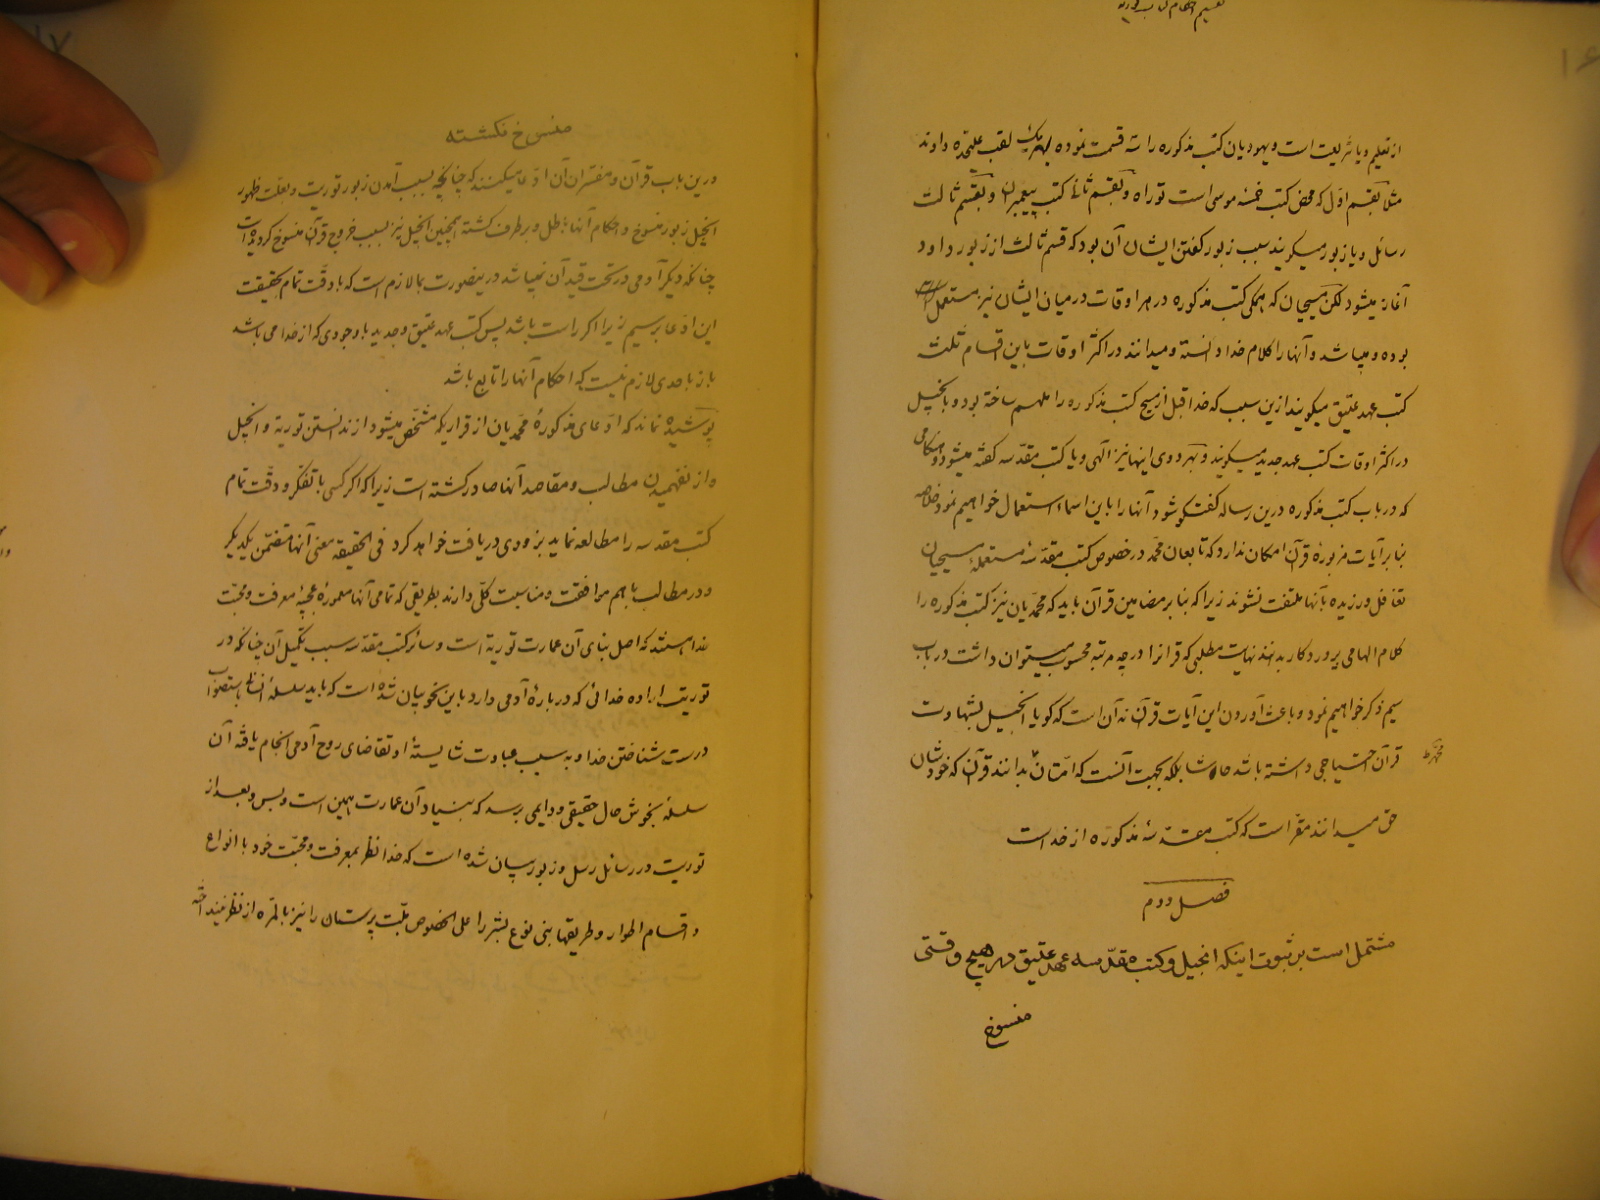 از تعلیم و یا شریعت است و یهودیان کتب مذکوره را سه قسمت نموده بهر یک لقب علیحده دادند
مثلا بقسم اول که محض کتب خمسهٔ موسی است توراه و بقسم ثانی کتب پیغمبران و بقسم ثالث
رسائل و یا زبور میگویند سبب زبور گفتن ایشان آن بود که قسم ثالث از زبور داود
آغاز میشود لکن مسیحیان که همگی کتب مذکوره در هر اوقات درمیان ایشان نیز مستعمل
بوده و میباشد و آنها را کلام خدا دانسته و میدانند در اکثر اوقات باین اقسام ثلثه
کتب عهد عتیق میگویند ازین سبب که خدا قبل از مسیح کتب مذکوره را ملهم ساخته بود و بانجیل
در اکثر اوقات کتب عهد جدید میگویند و بهر دوی اینها نیز الهی و یا کتب مقدسه گفته میشود و هنگامی
که در باب کتب مذکوره درین رساله گفتگو شود آنها را باین اسماء استعمال خواهیم نمود خلاصه
بنا بر آیات مزبورهٔ قرآن امکان ندارد که تابعان محمد در خصوص کتب مقدسهٔ مستعملهٔ مسیحیان
تغافل ورزیده بآنها ملتفت نشوند زیرا که بنا بر مضامین قرآن باید که محمدیان نیز کتب مذکوره را
کلام الهامی پروردگار بدانند نهایت مطلبی که قرآنرا در چه مرتبه محسوب میتوان داشت در باب
سیم ذکر خواهیم نمود و باعث آوردن این آیات قرآن نه آن است که گویا انجیل بشهادت
قرآن احتیاجی داشته باشد حاشا بلکه بجهت آنست که امتان محمد بدانند قرآن که خودشان
حق میدانند مقر است که کتب مقدسهٔ مذکوره از خداست
فصل دوم
مشتمل است بر ثبوت اینکه انجیل و کتب مقدسه عهد عتیق در هیچ وقتی
منسوخ
منسوخ نگشته
درین باب قرآن و مفسران آن ادعا میکنند که چنانچه بسبب آمدن زبور توریت و بعلت ظهور
انجیل زبور منسوخ و احکام آنها باطل و برطرف گشته همچنین انجیل نیز بسبب خروج قرآن منسوخ گردیده است
چنانکه دیگر آدمی در تحت قید آن نمیباشد درینصورت بما لازم است که با دقت تمام بحقیقت
این ادعا برسیم زیرا اگر راست باشد پس کتب عهد عتیق و جدید با وجودی که از خدا می باشد
باز باحدی لازم نیست که احکام آنها را تابع باشد
پوشیده نماند که ادعای مذکورهٔ محمدیان از قراریکه مشخص میشود از ندانستن توریة و انجیل
و از نفهمیدن مطالب و مقاصد آنها صادر گشته است زیرا که اگر کسی با تفکر و دقت تمام
کتب مقدسه را مطالعه نماید بزودی دریافت خواهد کرد فی الحقیقه معنی آنها متضمن یکدیگر
و در مطالب باهم موافقت و مناسبت کلی دارند بطریقی که تمامی آنها معمورهٔ عجیبهٔ معرفت و محبت
خدا هستند که اصل بنای آن عمارت توریة است و سائر کتب مقدسه سبب تکمیل آن چنانکه در
توریت ارادهٔ خدائی که دربارهٔ آدمی دارد باین نحو بیان شده است که باید سلسلهٔ انسانی
درست شناختن خدا و به سبب عبادت شایستهٔ او تقاضای روح آدمی انجام یافته آن
سلسله بخوش حال حقیقی و دایمی برسد که بنیاد آن عمارت همین است و بس و بعد از
توریت در رسائل رسل و زبور بیان شده است که خدا نظر بمعرفت و محبت خود با انواع
و اقسام اطوار و طریقها بنی نوع بشر را علی الخصوص بت پرستان را نیز بالمره از نظر